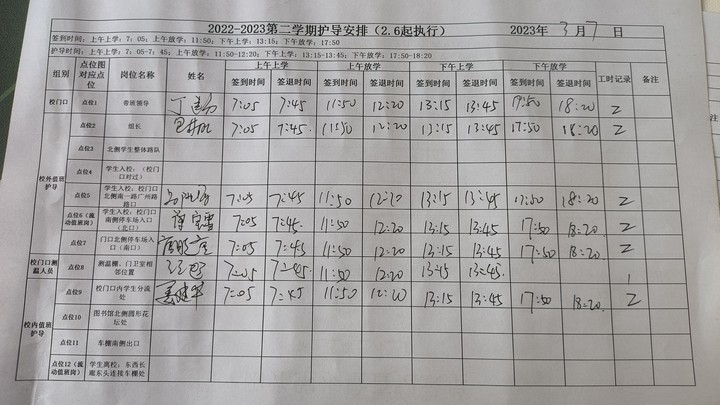 2022-2023第二学期护导安排（2.6起执行） 2023年 3月 7日
签到时间：上午上学：7：05；上午放学：11:50；下午上学：13:15；下午放学：17:50
护导时间：上午上学：7:05-7：45；上午放学：11:50-12:20；下午上学：13:15-13:45；下午放学：17:50-18:20
组别 点位图对应点位 岗位名称 姓名 上午上学 上午放学 下午上学 下午放学 工时记录 备注
签到时间 签退时间 签到时间 签退时间 签到时间 签退时间 签到时间 签退时间
校门口 点位1 带班领导 7:05 7:45 11:50 12:20 13:15 13:45 17:50 18:20 2
校外值班护导 点位2 组长 7:05 7:45 11:50 12:20 13:15 13:45 17:50 18:20 2
点位3 北侧学生整体路队
点位4 学生入校：（校门口对过）
点位5 学生入校：校门口北侧南一路广州路路口 7:05 7:45 11:50 12:20 13:15 13:45 17:50 18:20 2
点位6（流动值班岗） 学生入校：校门口南侧停车场入口（北口） 7:05 7:45 11:50 12:20 13:15 13:45 17:50 18:20 2
点位7 门口北侧停车场入口（南口） 7:05 7:45 11:50 12:20 13:15 13:45 17:50 18:20 2
校门口测温人员 点位8 测温棚、门卫室相邻位置 7:05 7:45 11:50 12:20 13:45 13:45 1
校内值班护导 点位9 校门口内学生分流处 7:05 7:45 11:50 12:20 13:15 13:45 17:50 18:20 2
点位10 图书馆北侧圆形花坛处
点位11 车棚南侧出口
点位12（流动值班岗） 学生离校：东西长廊东头连接车棚处